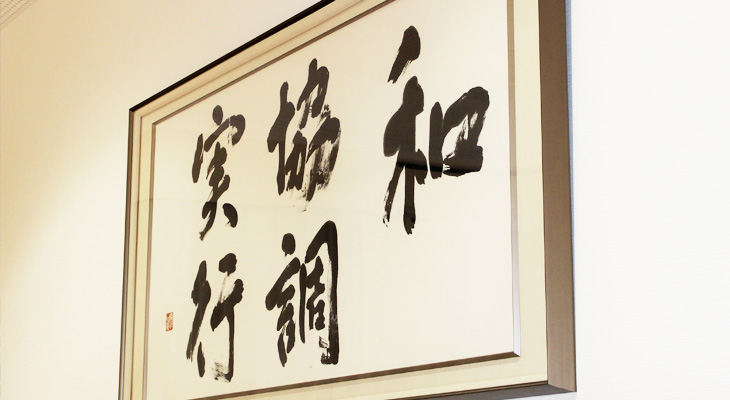 和
協調
実行